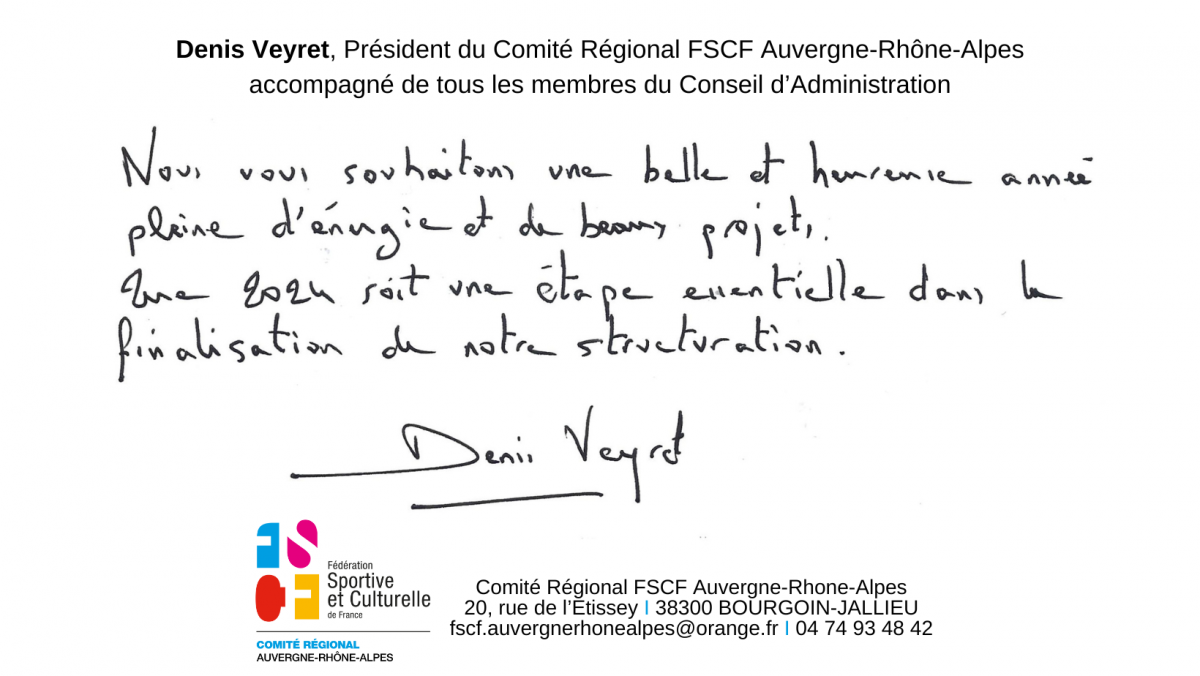 Denis Veyret, Président du Comité Régional FSCF Auvergne-Rhône-Alpes
accompagné de tous les membres du Conseil d'Administration
Nous vous souhaitons une belle et heureuse année
pleine d'énergie et de beaux projets.
Que 2024 soit une étape essentielle dans la
finalisation de notre structuration.
Denis Veyret
FS
CF
Fédération
Sportive
et Culturelle
de France
COMITÉ RÉGIONAL
AUVERGNE-RHÔNE-ALPES
Comité Régional FSCF Auvergne-Rhone-Alpes
20, rue de l'Etissey I 38300 BOURGOIN-JALLIEU
fscf.auvergnerhonealpes@orange.fr I 04 74 93 48 42